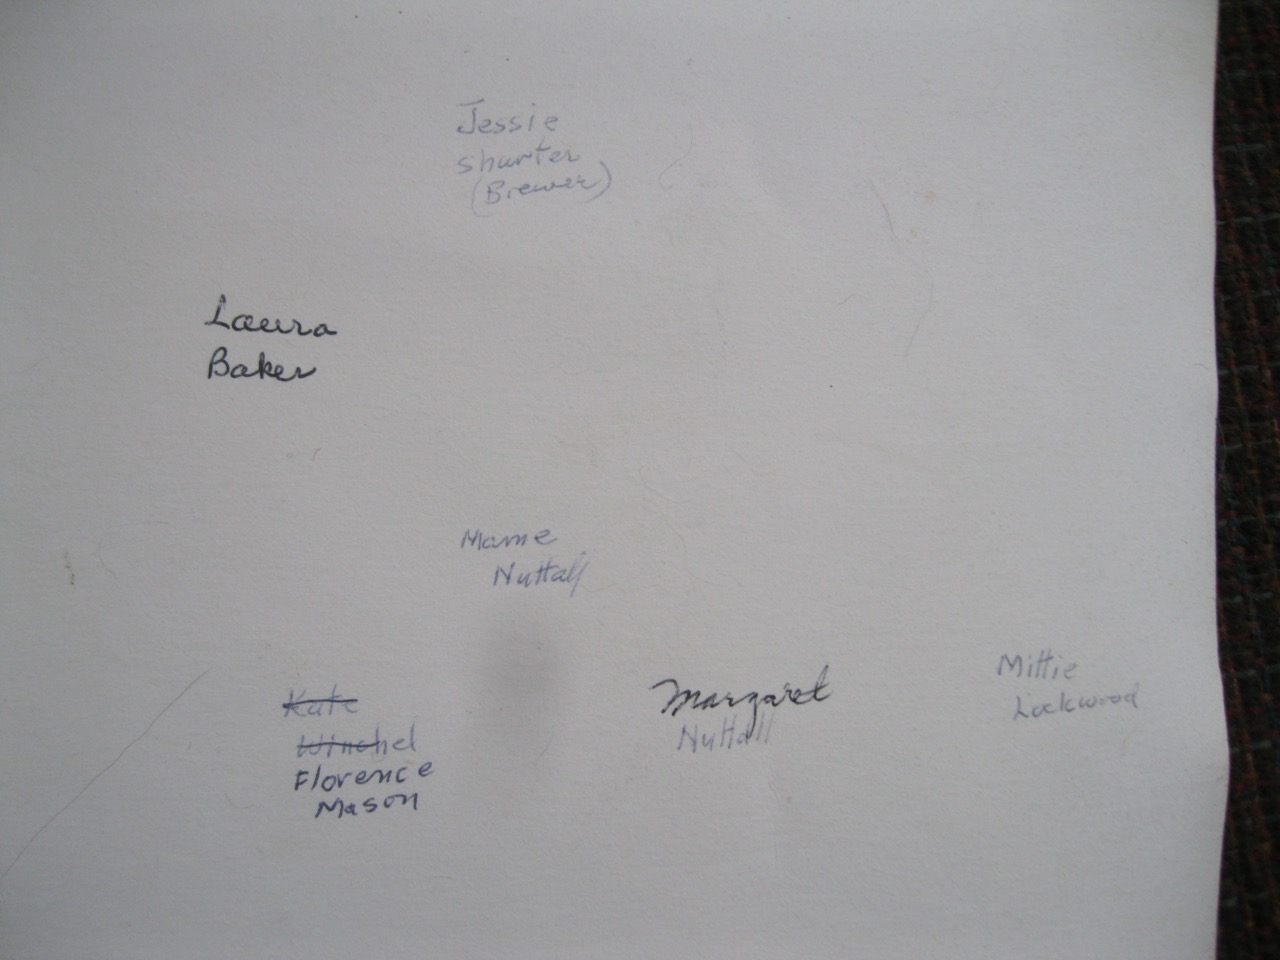 Jessie
Shurter
(Brewer)
Laura
Baker
Mame
Nuttall
Kate
Winchel
Florence
Mason
Margaret
Nuttall
Mittie
Lockwood